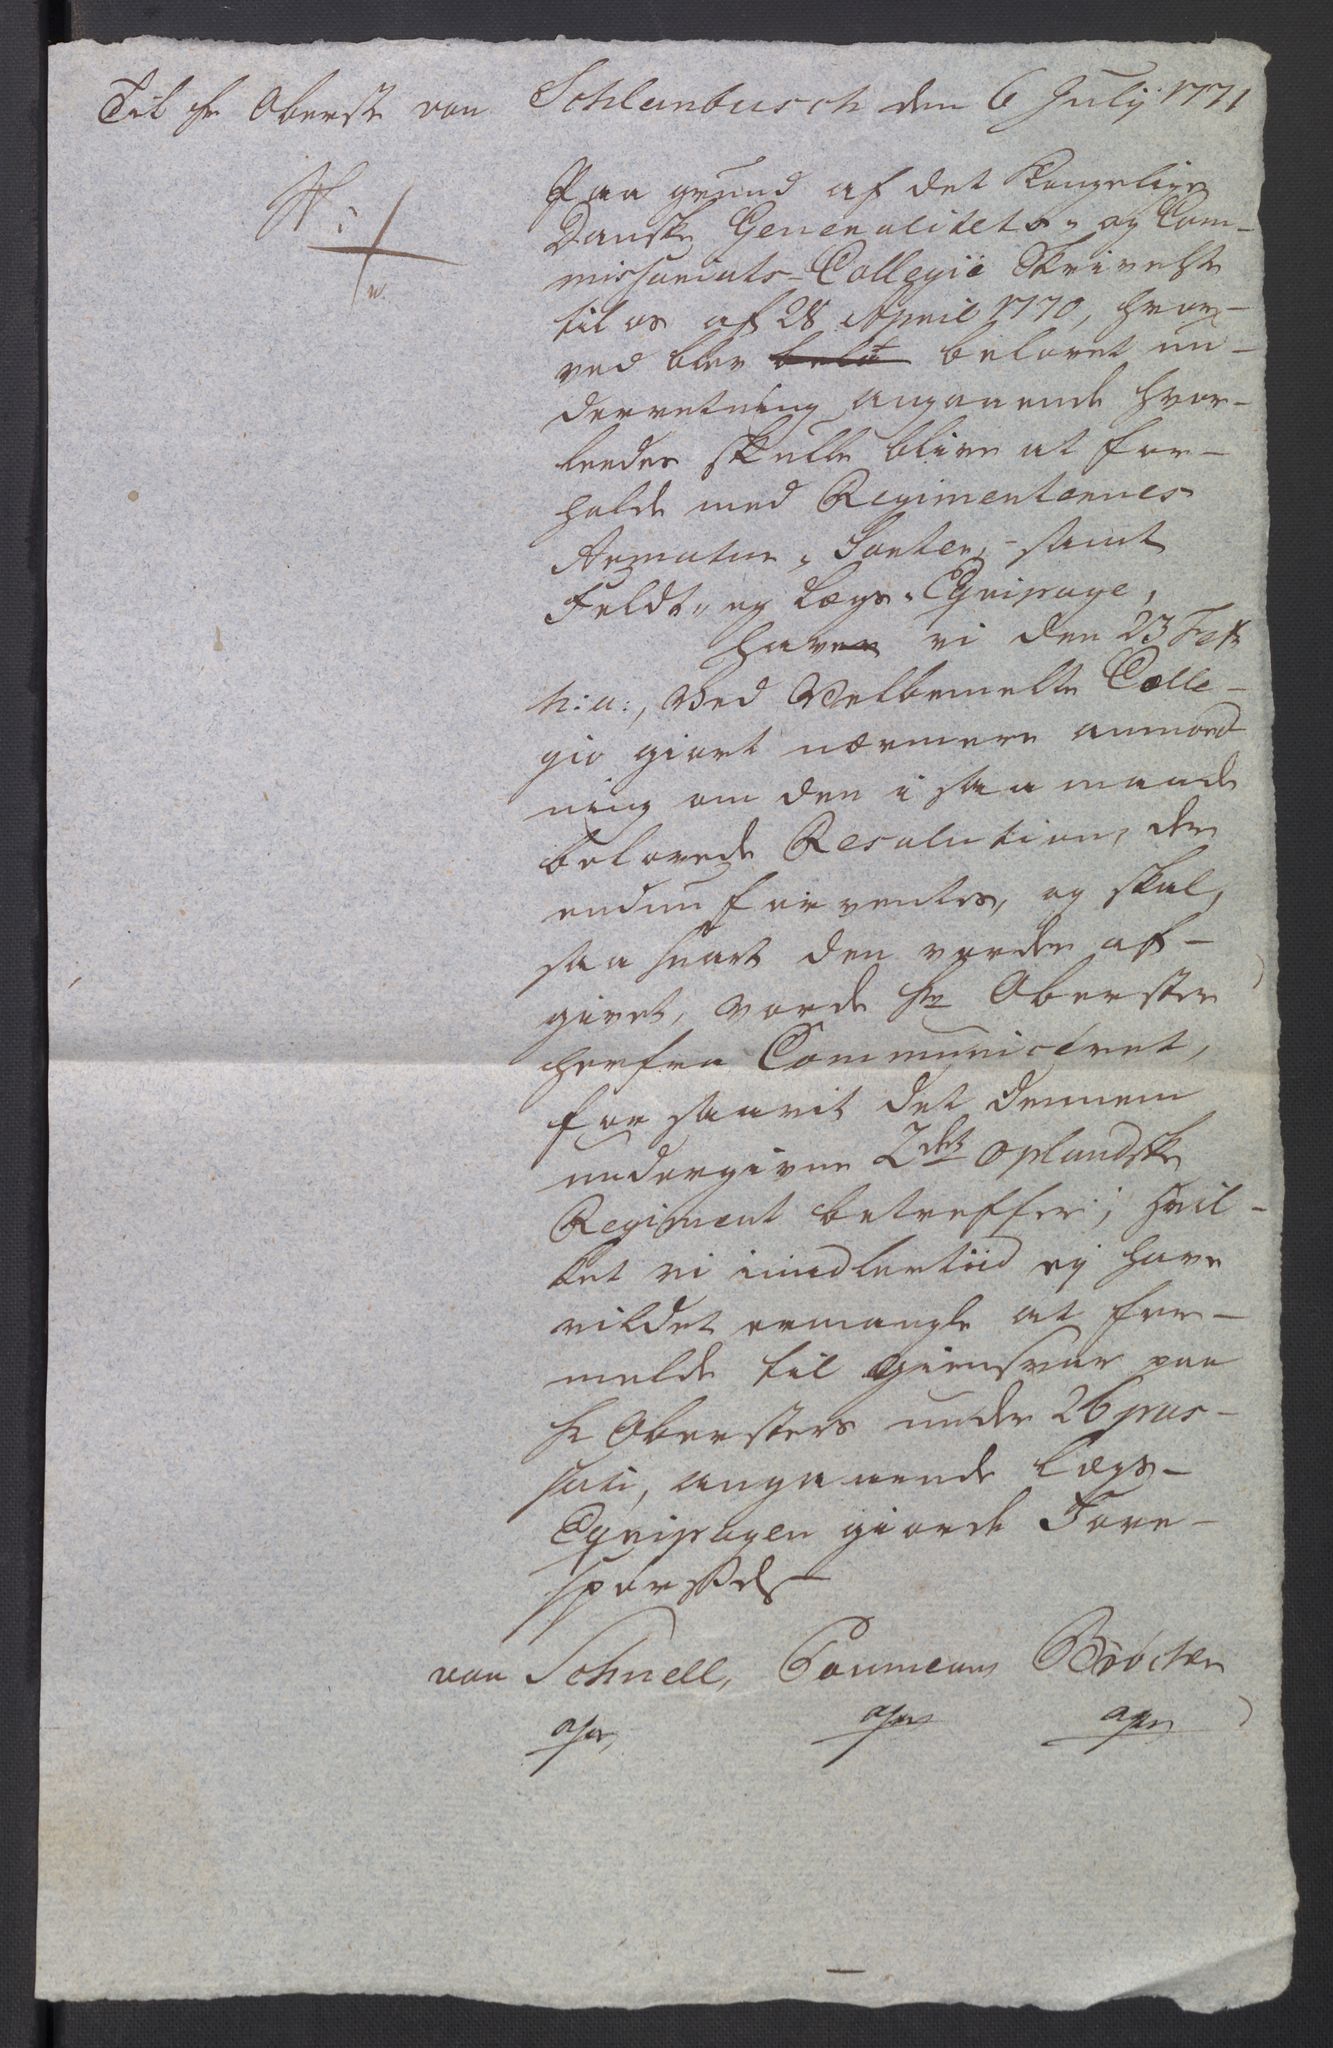 Til hr Oberste von Schlanbusch den 6 July 1771
N:
Paa grund af det Kongelige
Danske Generalitets- og Com-
missariats-Collegii Skrivelse
til os af 28 April 1770, hvor-
ved blev belovet un-
derretning angaaende hvor-
ledes skulle blive at for-
holde med Regimenternes
Armatur, samt
Feldt- og Lægs-Equipage,
have vi den 23 Febr
h: a:, Ved Velbemelte Colle-
gio giort nærmere anmod
ning om den i saa maade
belovede Resolution, der
endnu forventes, og skal,
saa snart den vorder af-
givet, vorde hr Obersten
herfra Communiceret,
for saavit det dennem
undergivne 2det Oplandske
Regiment betreffer; hvil-
ket vi imidlertiid ej have
vildet ermangle at for-
melde til giensvar paa
hr Oberstens under 26 pas-
sati, angaaende Lægs-
Equipagen giorde Fore-
spørsel
von Schnell,